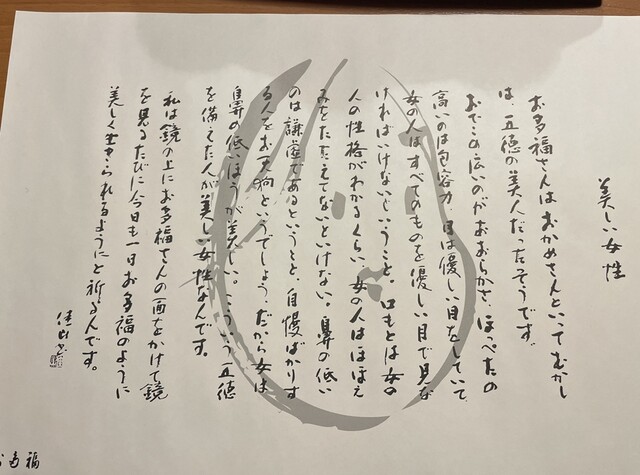 美しい女性
お多福さんはおかめさんといってむかし
は、五徳の美人だったそうです。
おでこの広いのがおおらかさ、ほっぺたの
高いのは包容力、目は優しい目をしていて、
女の人はすべてのものを優しい目で見な
ければいけないということ。口もとは女の
人の性格がわかるくらい、女の人はほほえ
みをたたえてないといけない。鼻の低い
のは謙遜であるということ、自慢ばかりす
る人をお天狗というでしょう。だから女は
鼻の低いほうが美しい。こういう五徳
を備えた人が美しい女性なんです。
私は鏡の上にお多福さんの面をかけて鏡
を見るたびに今日も一日お多福のように
美しく生きられるようにと祈るんです。
お多福